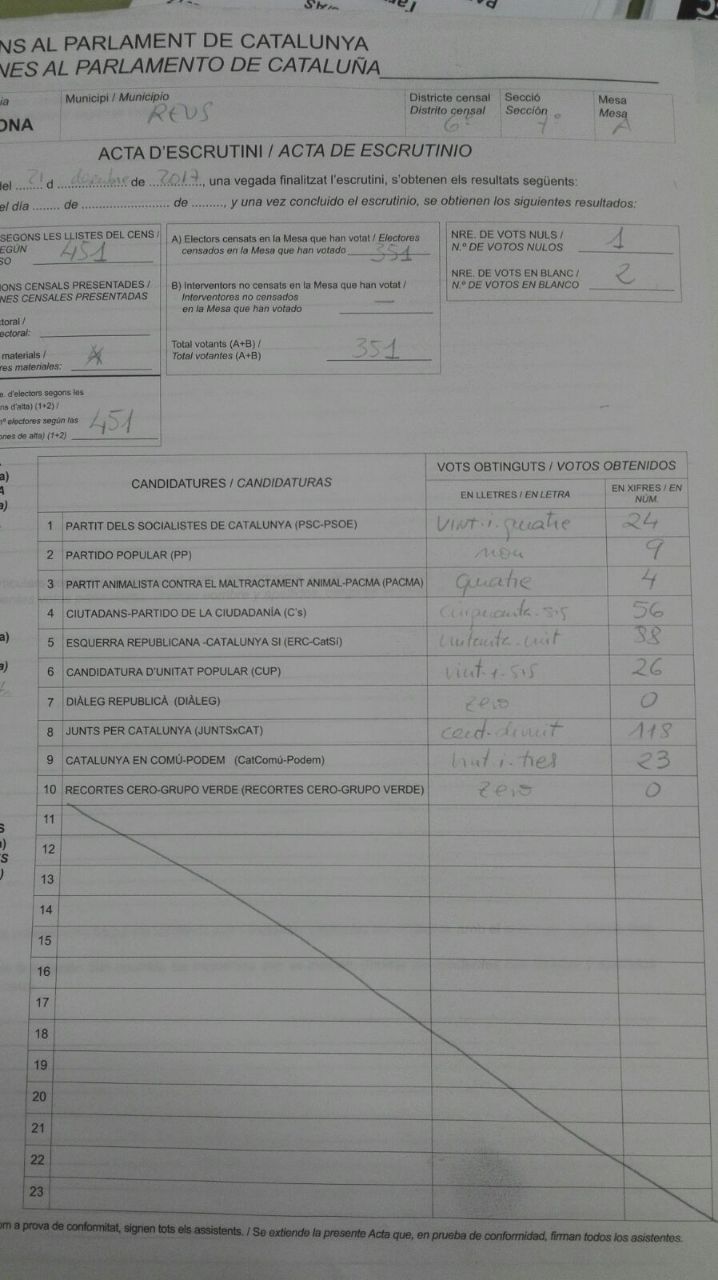 NS AL PARLAMENT DE CATALUNYA
NES AL PARLAMENTO DE CATALUÑA
ia
ONA
Municipi / Municipio
REUS
Districte censal
Distrito censal
6º
Secció
Sección
7º
Mesa
Mesa
A
ACTA D'ESCRUTINI / ACTA DE ESCRUTINIO
del 21 d desembre de 2017, una vegada finalitzat l'escrutini, s'obtenen els resultats següents:
el día ........ de ........................ de ........., y una vez concluido el escrutinio, se obtienen los siguientes resultados:
SEGONS LES LLISTES DEL CENS /
EGÚN
SO 451
IONS CENSALS PRESENTADES /
NES CENSALES PRESENTADAS
toral /
ectoral:
materials /
res materiales:
e. d'electors segons les
ns d'alta) (1+2) /
nº electores según las
ones de alta) (1+2) 451
A) Electors censats en la Mesa que han votat / Electores
censados en la Mesa que han votado 351
B) Interventors no censats en la Mesa que han votat /
Interventores no censados
en la Mesa que han votado —
Total votants (A+B) /
Total votantes (A+B) 351
NRE. DE VOTS NULS /
N.º DE VOTOS NULOS 1
NRE. DE VOTS EN BLANC /
N.º DE VOTOS EN BLANCO 2
CANDIDATURES / CANDIDATURAS
VOTS OBTINGUTS / VOTOS OBTENIDOS
EN LLETRES / EN LETRA
EN XIFRES / EN
NÚM.
1 PARTIT DELS SOCIALISTES DE CATALUNYA (PSC-PSOE) Vint-i-quatre 24
2 PARTIDO POPULAR (PP) nou 9
3 PARTIT ANIMALISTA CONTRA EL MALTRACTAMENT ANIMAL-PACMA (PACMA) quatre 4
4 CIUTADANS-PARTIDO DE LA CIUDADANÍA (C's) cinquanta-sis 56
5 ESQUERRA REPUBLICANA -CATALUNYA SI (ERC-CatSí) vuitanta-vuit 88
6 CANDIDATURA D'UNITAT POPULAR (CUP) vint-i-sis 26
7 DIÀLEG REPUBLICÀ (DIÀLEG) zero 0
8 JUNTS PER CATALUNYA (JUNTSxCAT) cent-divuit 118
9 CATALUNYA EN COMÚ-PODEM (CatComú-Podem) vint-i-tres 23
10 RECORTES CERO-GRUPO VERDE (RECORTES CERO-GRUPO VERDE) zero 0
11
12
13
14
15
16
17
18
19
20
21
22
23
om a prova de conformitat, signen tots els assistents. / Se extiende la presente Acta que, en prueba de conformidad, firman todos los asistentes.